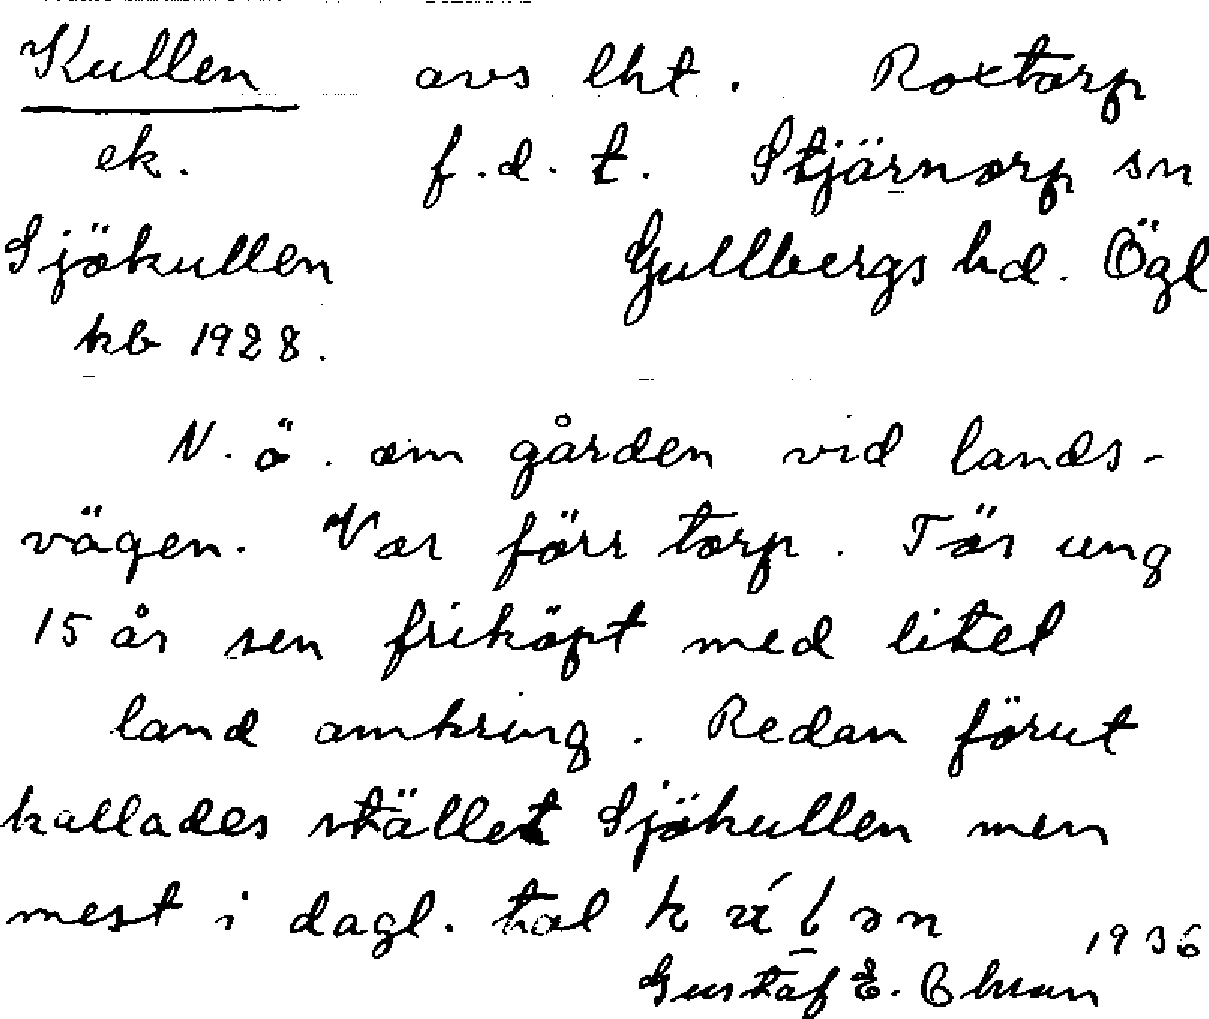 Kullen avs lht. Roxtorp
ek. f.d.t. Stjärnorp sn
Sjökullen Gullbergs hd. Ögl
kb 1928.
N.ö. om gården vid lands-
vägen. Var förr torp. För ung
15 år sen friköpt med litet
land omkring. Redan förut
kallades stället Sjökullen men
mest i dagl. tal
1936
Gustaf E.